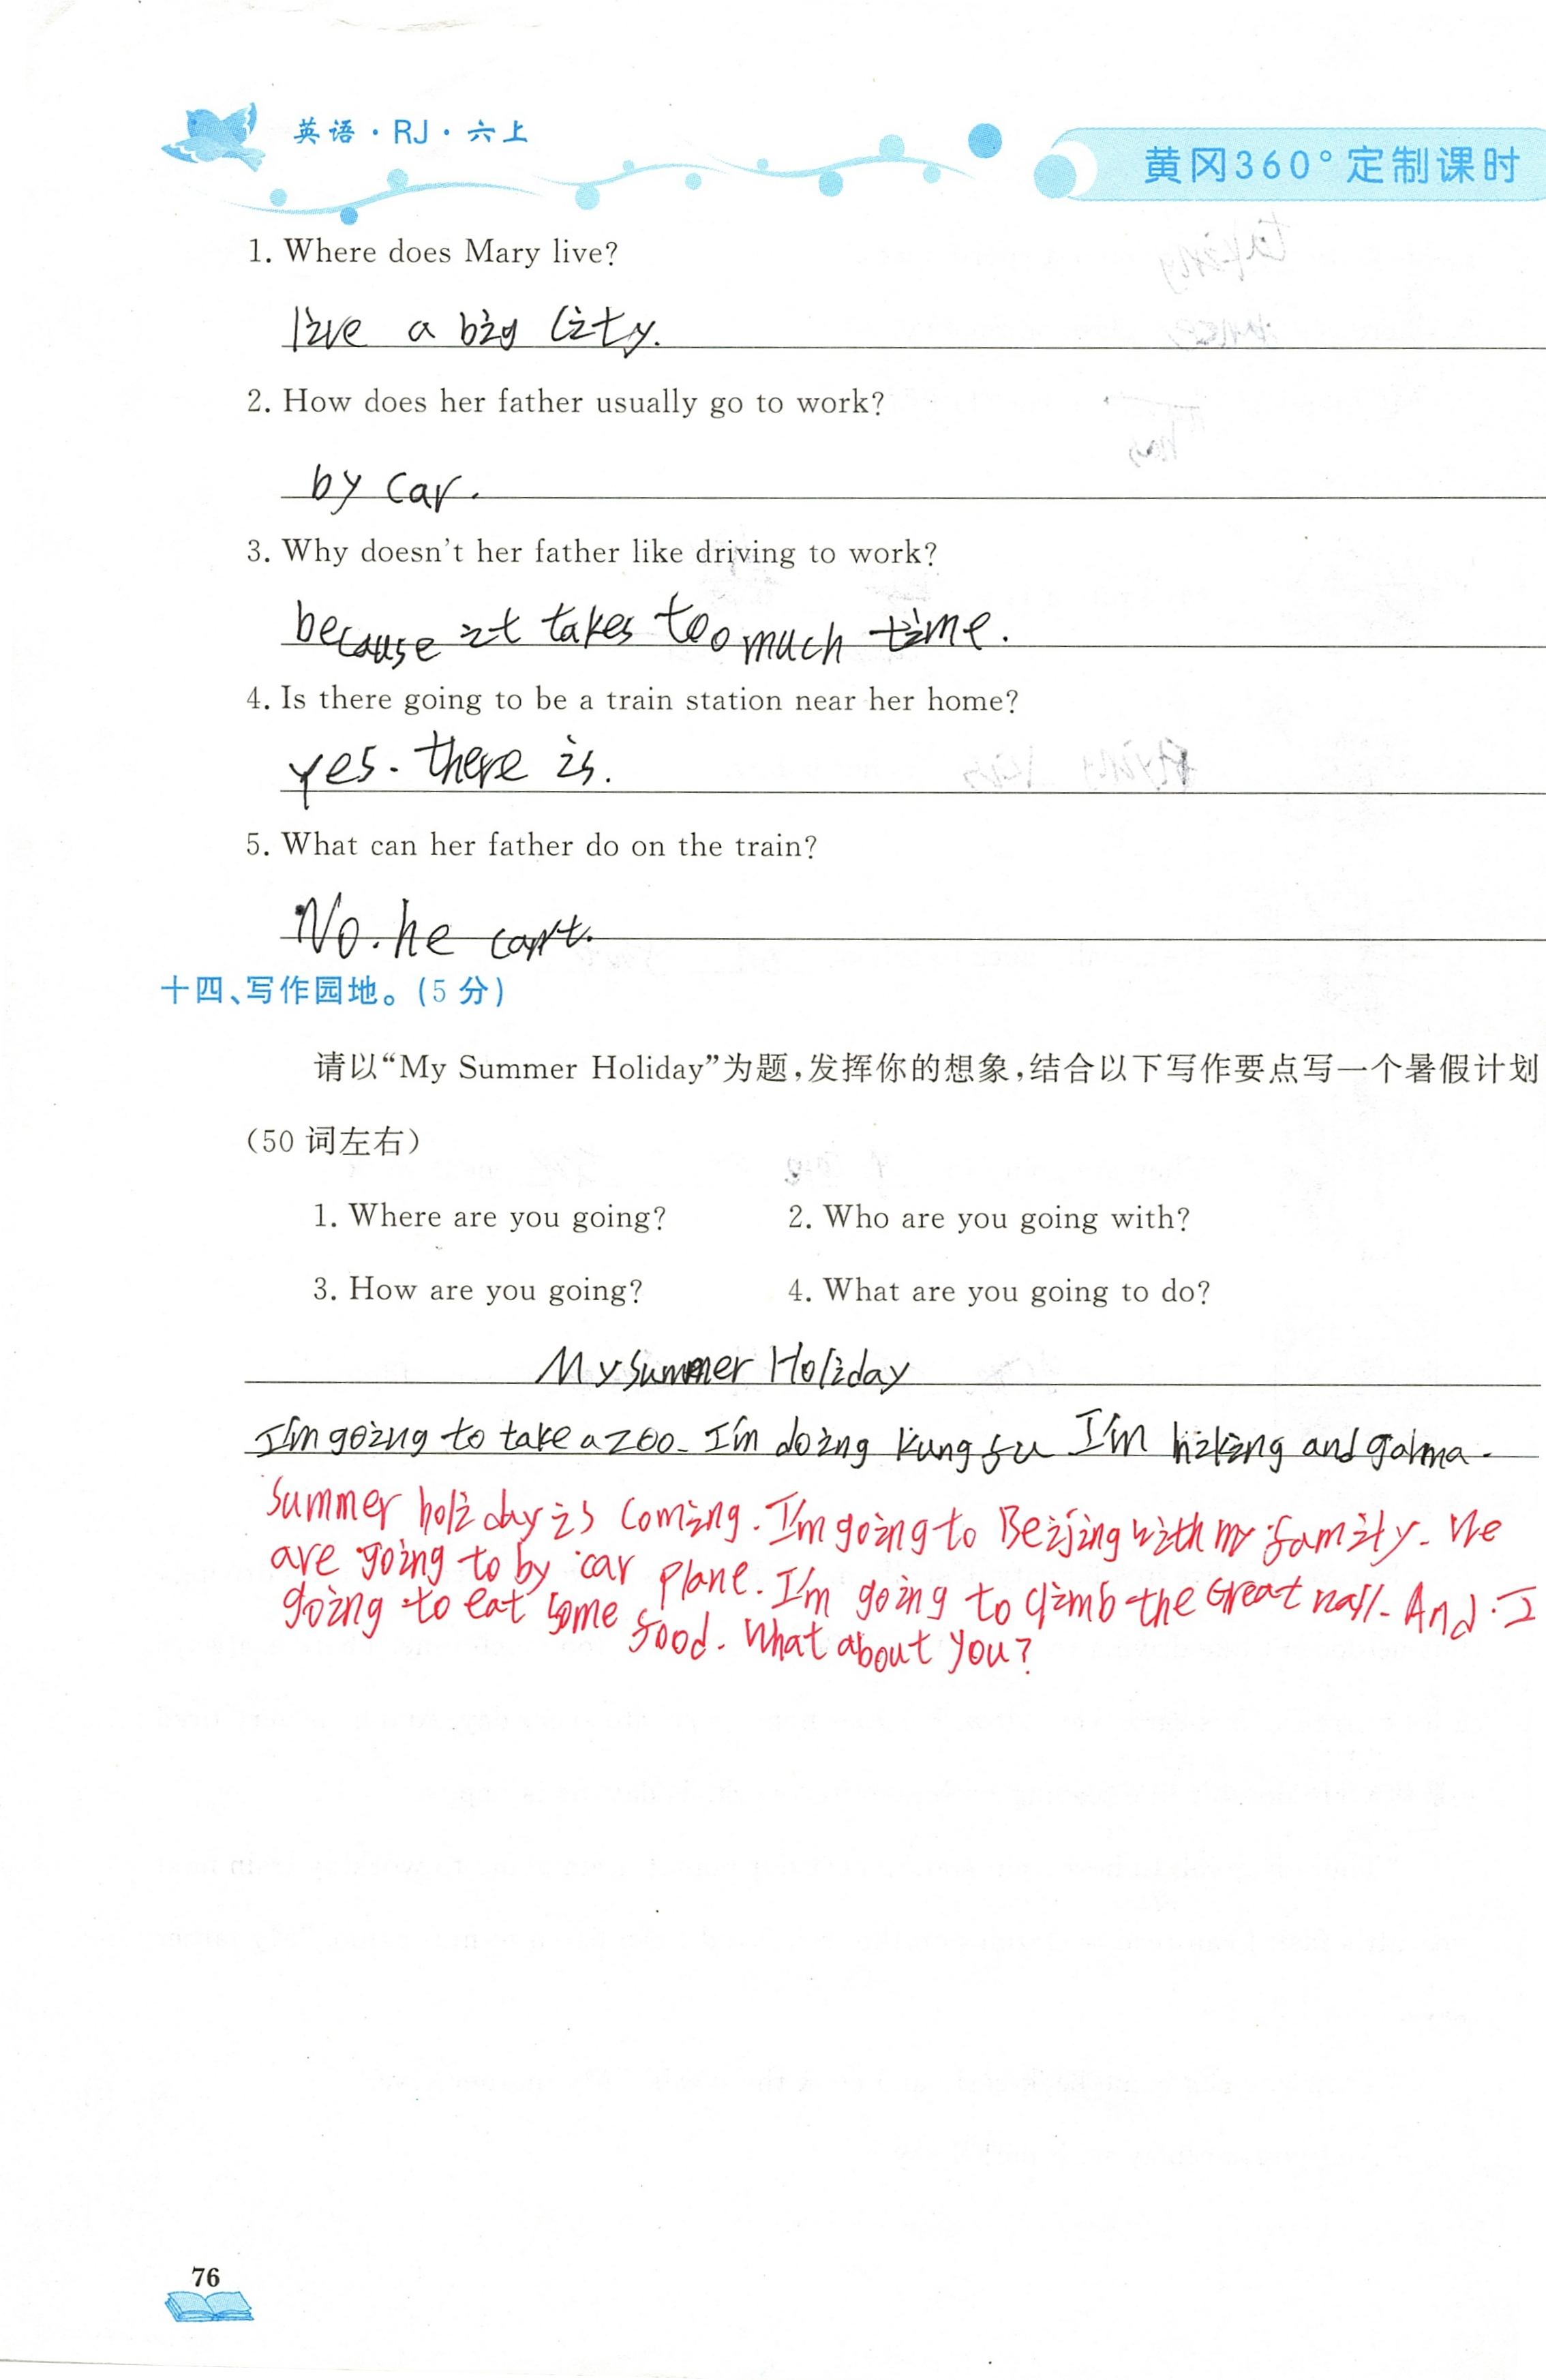 英语·RJ·六上
黄冈360°定制课时
1. Where does Mary live?
live a big city.
2. How does her father usually go to work?
by car.
3. Why doesn't her father like driving to work?
because it takes too much time.
4. Is there going to be a train station near her home?
yes. there is.
5. What can her father do on the train?
No. he can't.
十四、写作园地。(5 分)
请以“My Summer Holiday”为题,发挥你的想象,结合以下写作要点写一个暑假计划
(50 词左右)
1. Where are you going? 2. Who are you going with?
3. How are you going? 4. What are you going to do?
My summer Holiday
I'm going to take a zoo. I'm doing kung fu I'm hiking and
Summer holiday is coming. I'm going to Beijing with my family. We
are going to by car plane. I'm going to climb the Great wall. And I
going to eat some food. What about you?
76